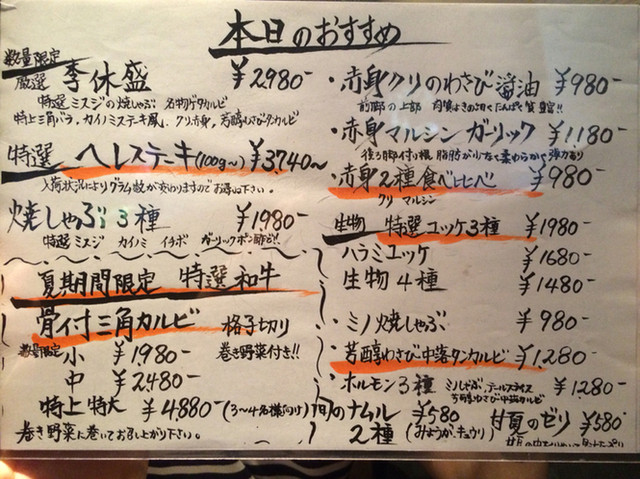 本日のおすすめ
数量限定
厳選 李休盛 ¥2980-
特選 ミスジの焼しゃぶ 名物ゲタカルビ
特上三角バラ、カイノミステーキ風、クリ赤身、芳醇わさび中落タンカルビ
特選 ヘレステーキ(100g〜) ¥3740〜
入荷状況によりグラム数が変わりますのでお尋ね下さい。
焼しゃぶ3種 ¥1980-
特選ミスジ カイノミ イチボ ガーリックポン酢ど!!
夏期間限定 特選和牛
骨付三角カルビ 格子切り
数量限定 小 ¥1980- 巻き野菜付き!!
中 ¥2480-
特上 特大 ¥4880-(3〜4名様向け)
巻き野菜に巻いてお召し上がり下さい。
・赤身クリのわさび醤油 ¥980-
前脚の上部
・赤身マルシン ガーリック ¥1180-
後ろ脚付け根 脂肪が少なく柔らかく弾力あり
・赤身2種食べ比べ ¥980-
クリ マルシン
生物 特選ユッケ3種 ¥1980-
ハラミユッケ ¥1680-
生物4種 ¥1480-
・ミノ焼しゃぶ ¥980-
・芳醇わさび中落タンカルビ ¥1280-
・ホルモン3種 ミノしゃぶ、テールスライス ¥1280-
芳醇わさび中落カルビ
旬のナムル ¥580
2種 (みょうが、キュウリ)
甘夏のゼリー ¥580-